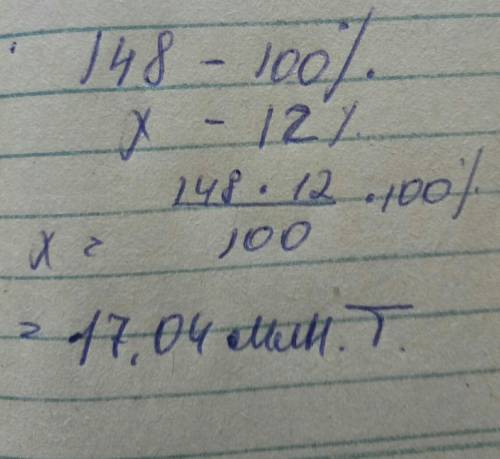 148 - 100%.
x - 12%
x = 148 · 12 / 100 · 100%
= 17,04 млн. т.